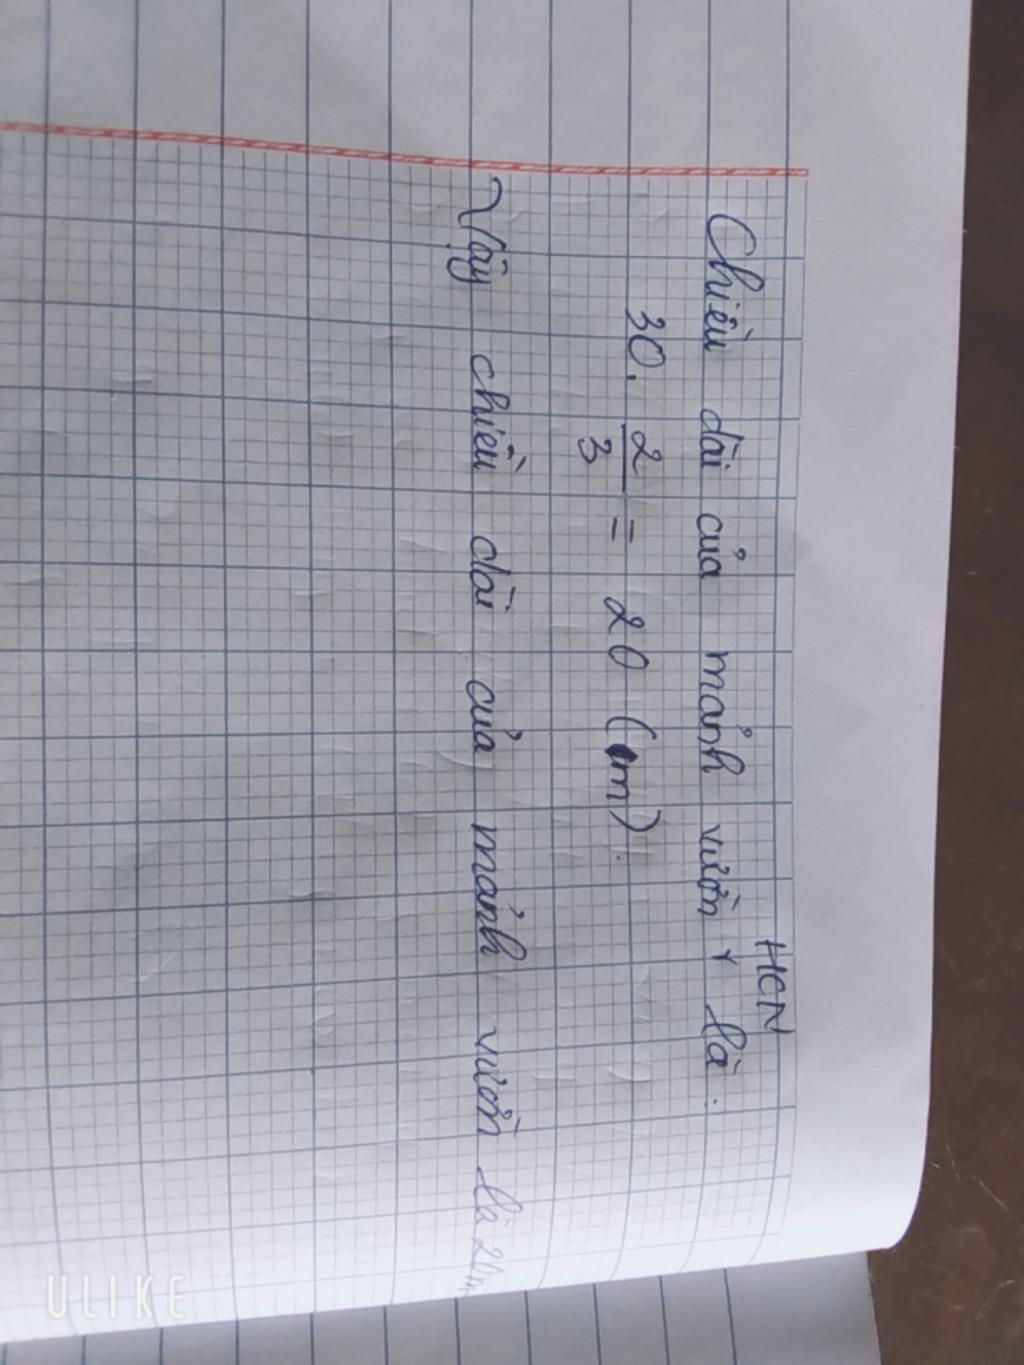 Chiều dài của mảnh vườn HCN là:
30. 2/3 = 20 (m).
Vậy chiều dài của mảnh vườn là 20m
ULIKE